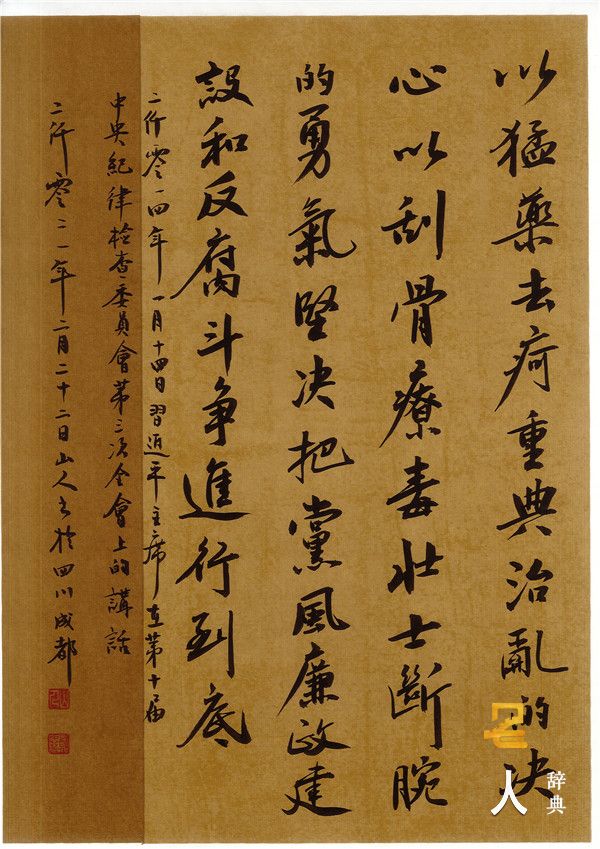 以猛藥去疴重典治亂的决
心以刮骨療毒壮士斷腕
的勇氣堅决把黨風廉政建
設和反腐斗争進行到底
二仟零一四年一月十四日習近平主席在第十八届
中央紀律檢查委員會第三次全會上的講話
二仟零二一年二月二十二日山人书於四川成都
名人辞典